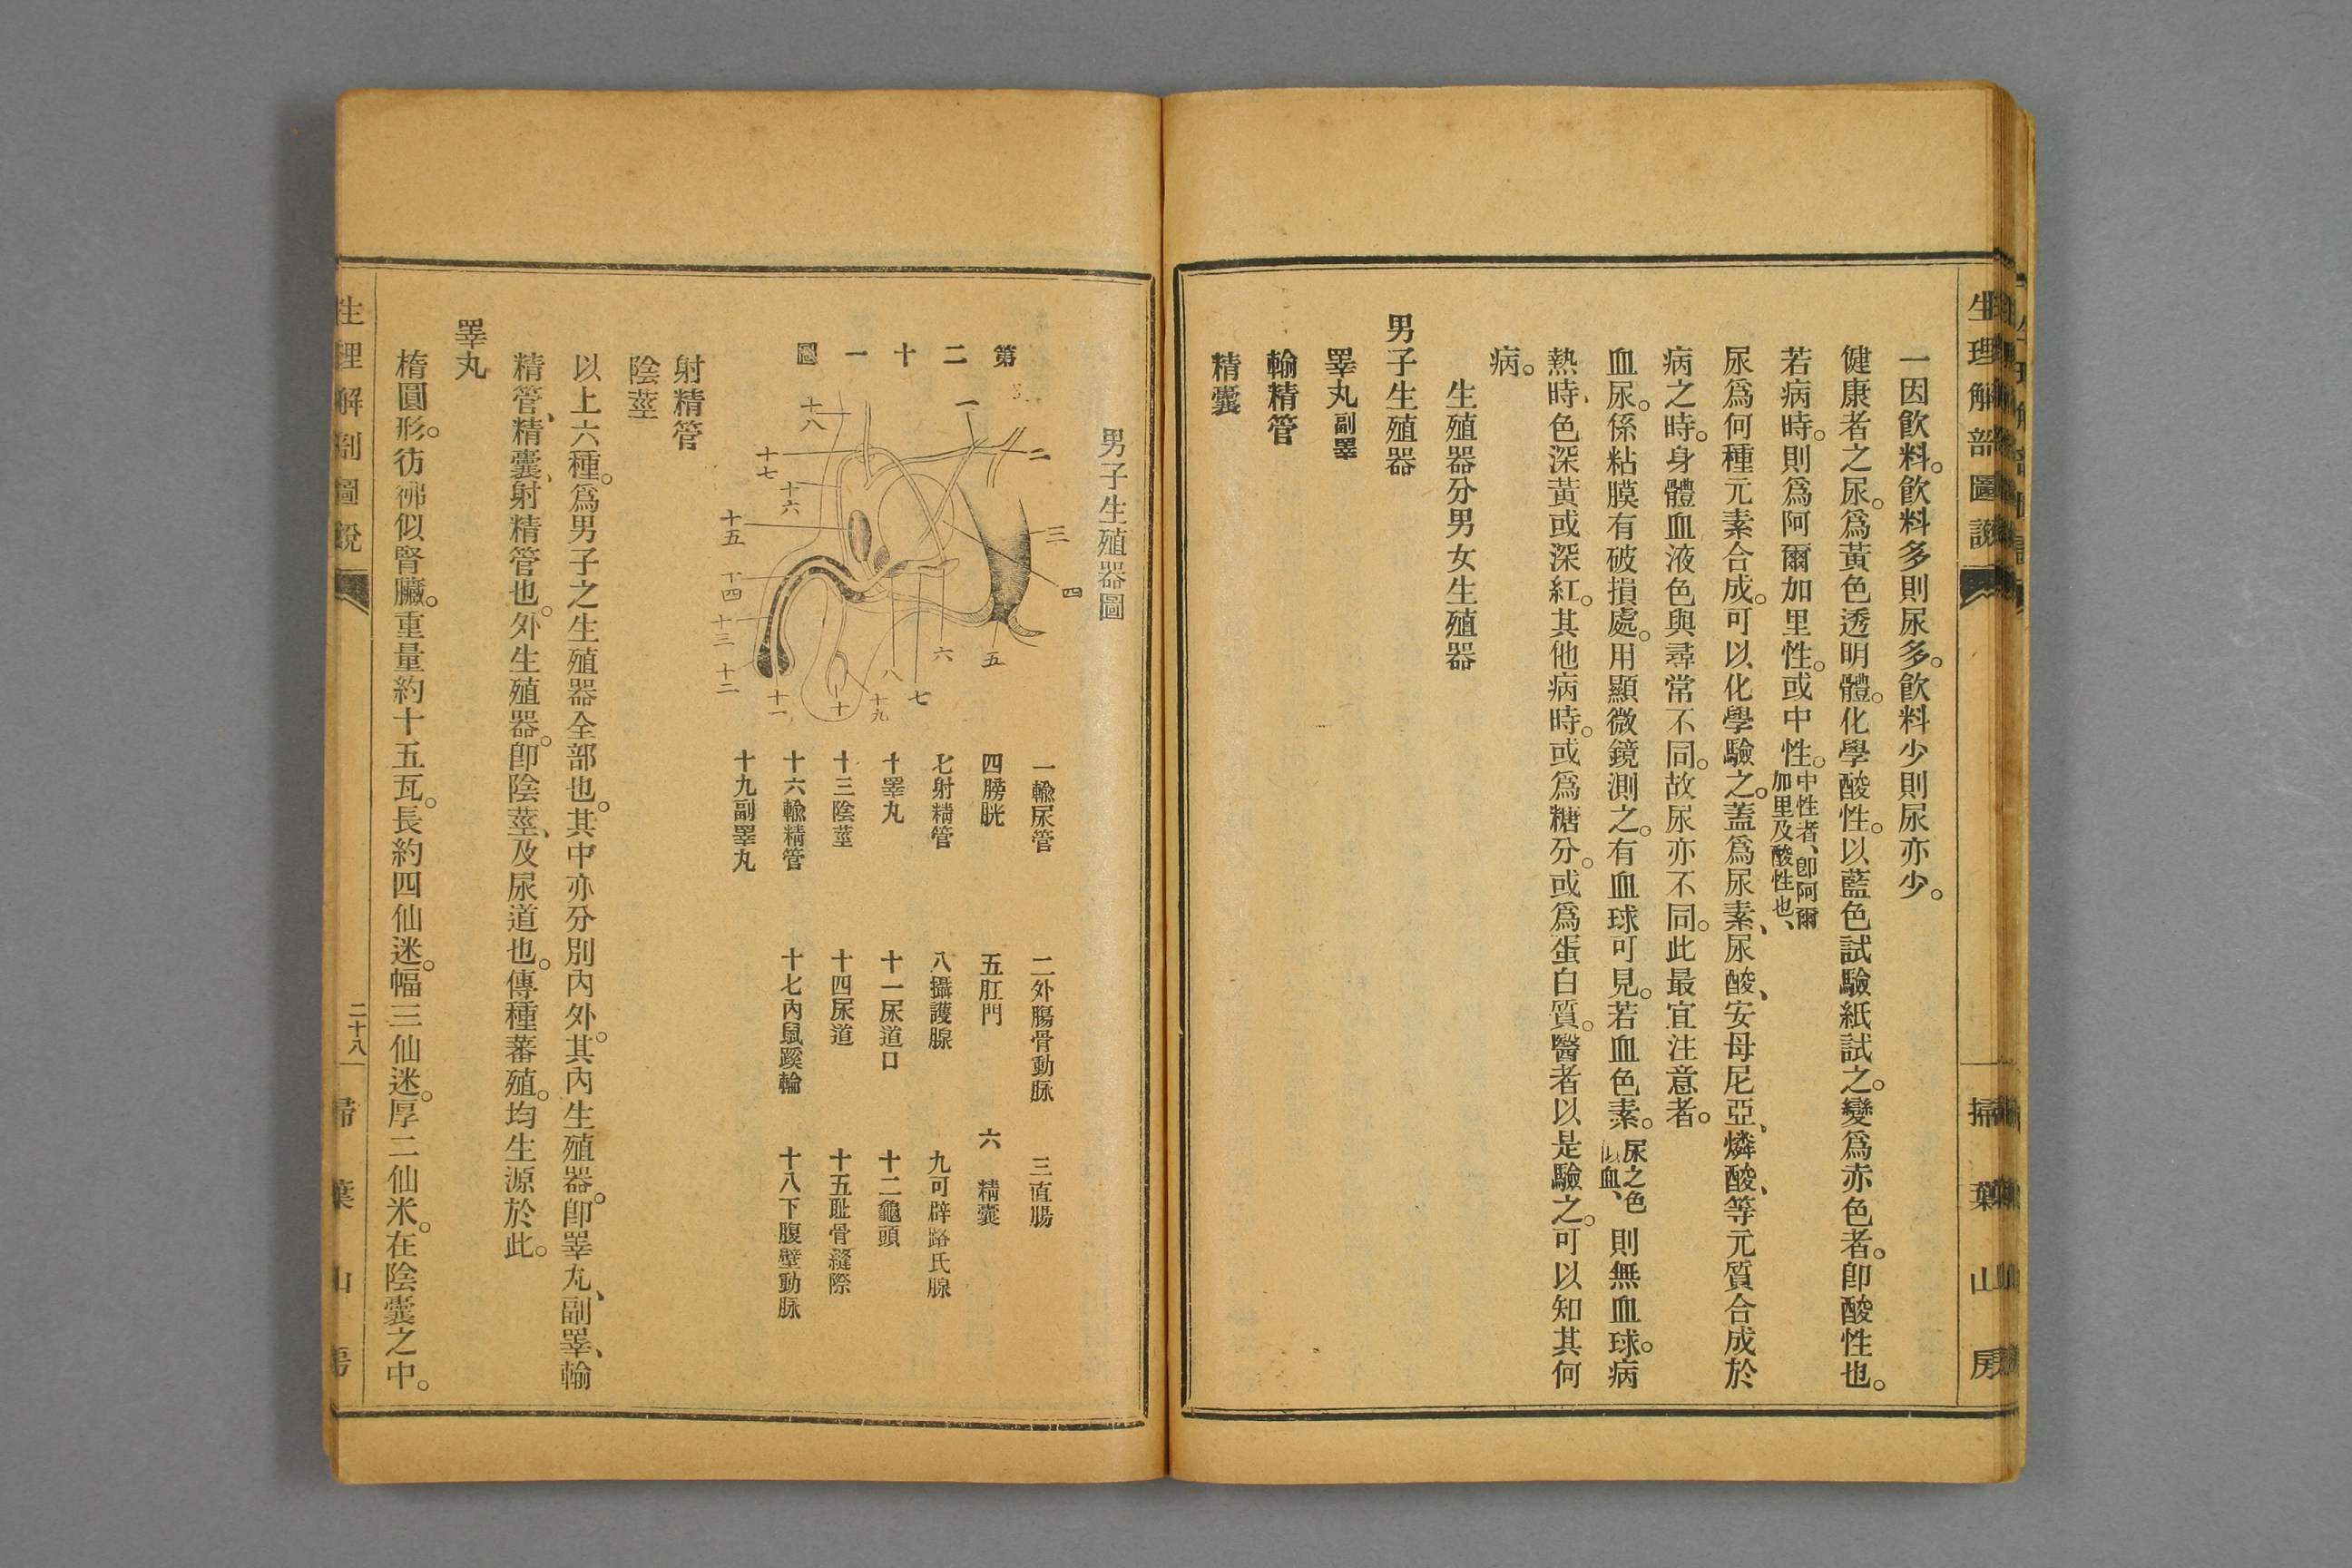 生理解剖圖說
掃葉山房
一因飲料。飲料多則尿多。飲料少則尿亦少。
健康者之尿。爲黃色透明體。化學酸性。以藍色試驗紙試之。變爲赤色者。卽酸性也。
若病時。則爲阿爾加里性。或中性。中性者、卽阿爾加里及酸性也、
尿爲何種元素合成。可以化學驗之。蓋爲尿素、尿酸、安母尼亞、燐酸、等元質合成於
病之時。身體血液色與尋常不同。故尿亦不同。此最宜注意者。
血尿。係粘膜有破損處。用顯微鏡測之。有血球可見。若血色素。尿之色似血、則無血球。病
熱時、色深黃或深紅。其他病時。或爲糖分。或爲蛋白質。醫者以是驗之。可以知其何
病。
生殖器分男女生殖器
男子生殖器
睪丸副睪
輸精管
精囊
男子生殖器圖
第二十一圖
一
二
三
四
五
六
七
八
十九
十
十一
十二
十三
十四
十五
十六
十七
十八
一輸尿管 二外腸骨動脉 三直腸
四膀胱 五肛門 六精囊
七射精管 八攝護腺 九可辟路氏腺
十睪丸 十一尿道口 十二龜頭
十三陰莖 十四尿道 十五耻骨縫際
十六輸精管 十七內鼠蹊輪 十八下腹壁動脉
十九副睪丸
射精管
陰莖
以上六種。爲男子之生殖器全部也。其中亦分別內外。其內生殖器。卽睪丸、副睪、輸
精管、精囊、射精管也。外生殖器。卽陰莖、及尿道也。傳種蕃殖。均生源於此。
睪丸
楕圓形。彷彿似腎臟。重量約十五瓦。長約四仙迷。幅三仙迷。厚二仙米。在陰囊之中。
生理解剖圖說
二十八
掃葉山房